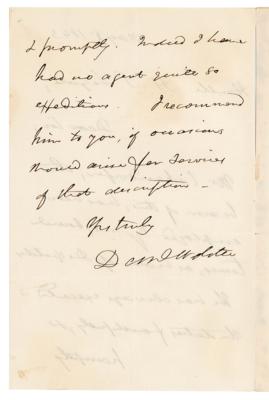 & promptly. Indeed I have
had no agent quite so
expeditious. I recommend
him to you, if occasions
should arise for services
of that description –
Yrs truly
Danl Webster